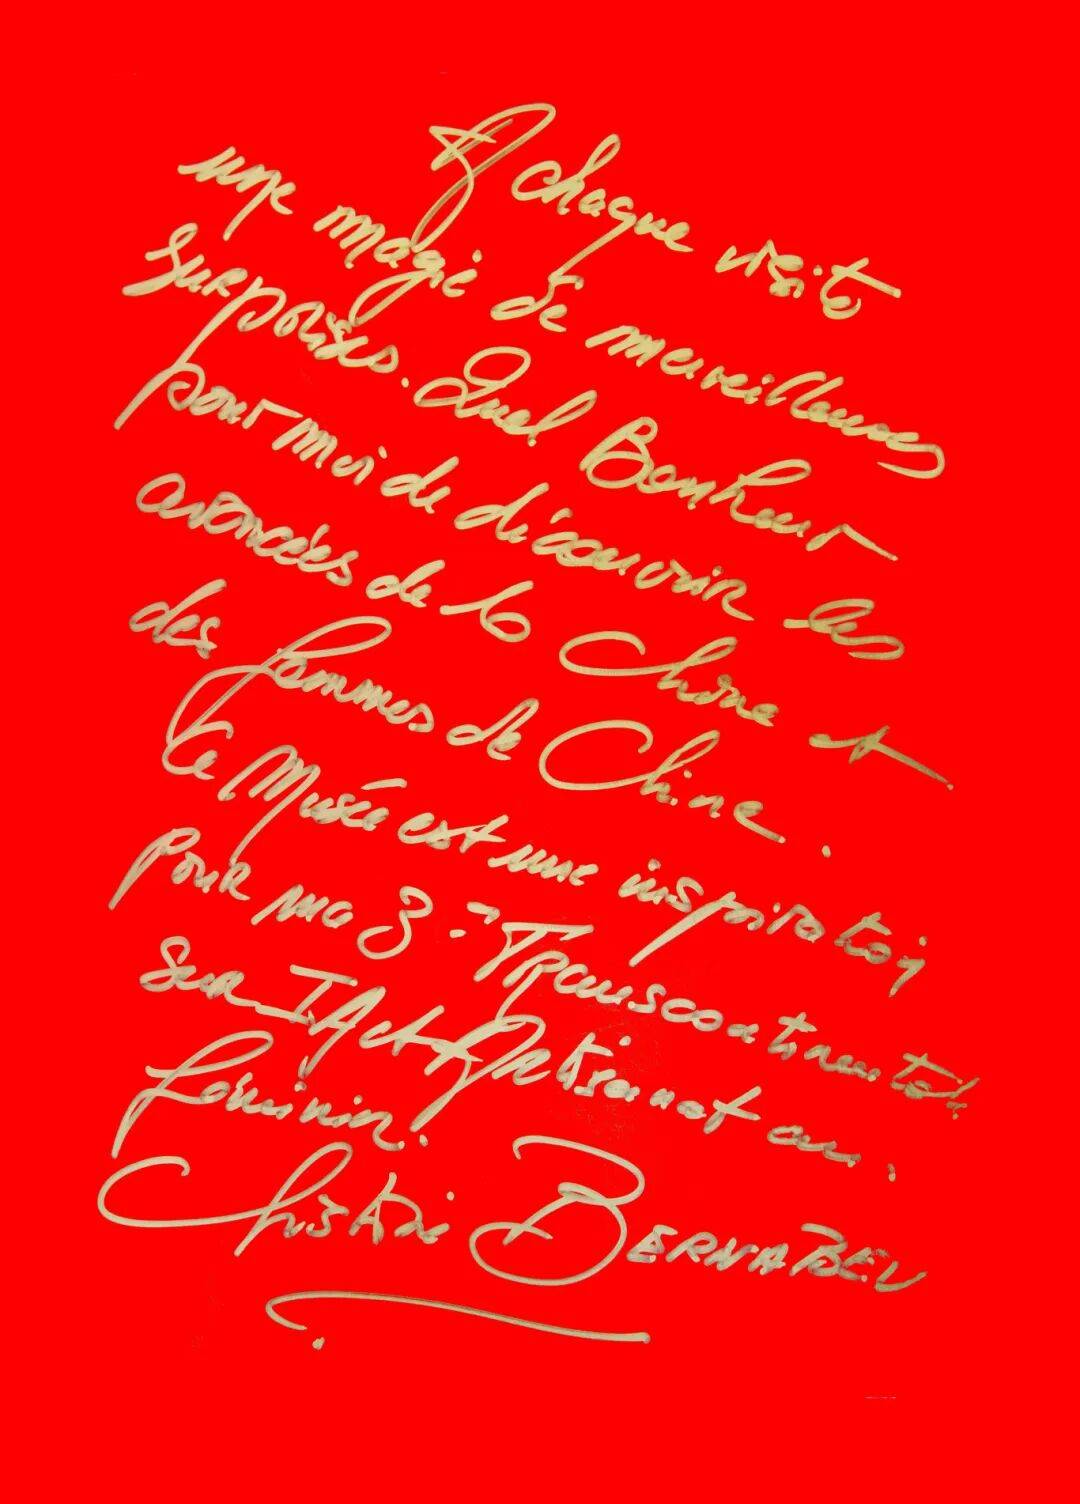 A chaque visite
une magie de merveilleuses
surprises. Quel Bonheur
pour moi de découvrir les
avancées de la Chine et
des femmes de Chine.
Ce Musée est une inspiration
pour ma 3e Transcontinentale
sur I.A et Artisanat au
Féminin.
Christine BERNABEU